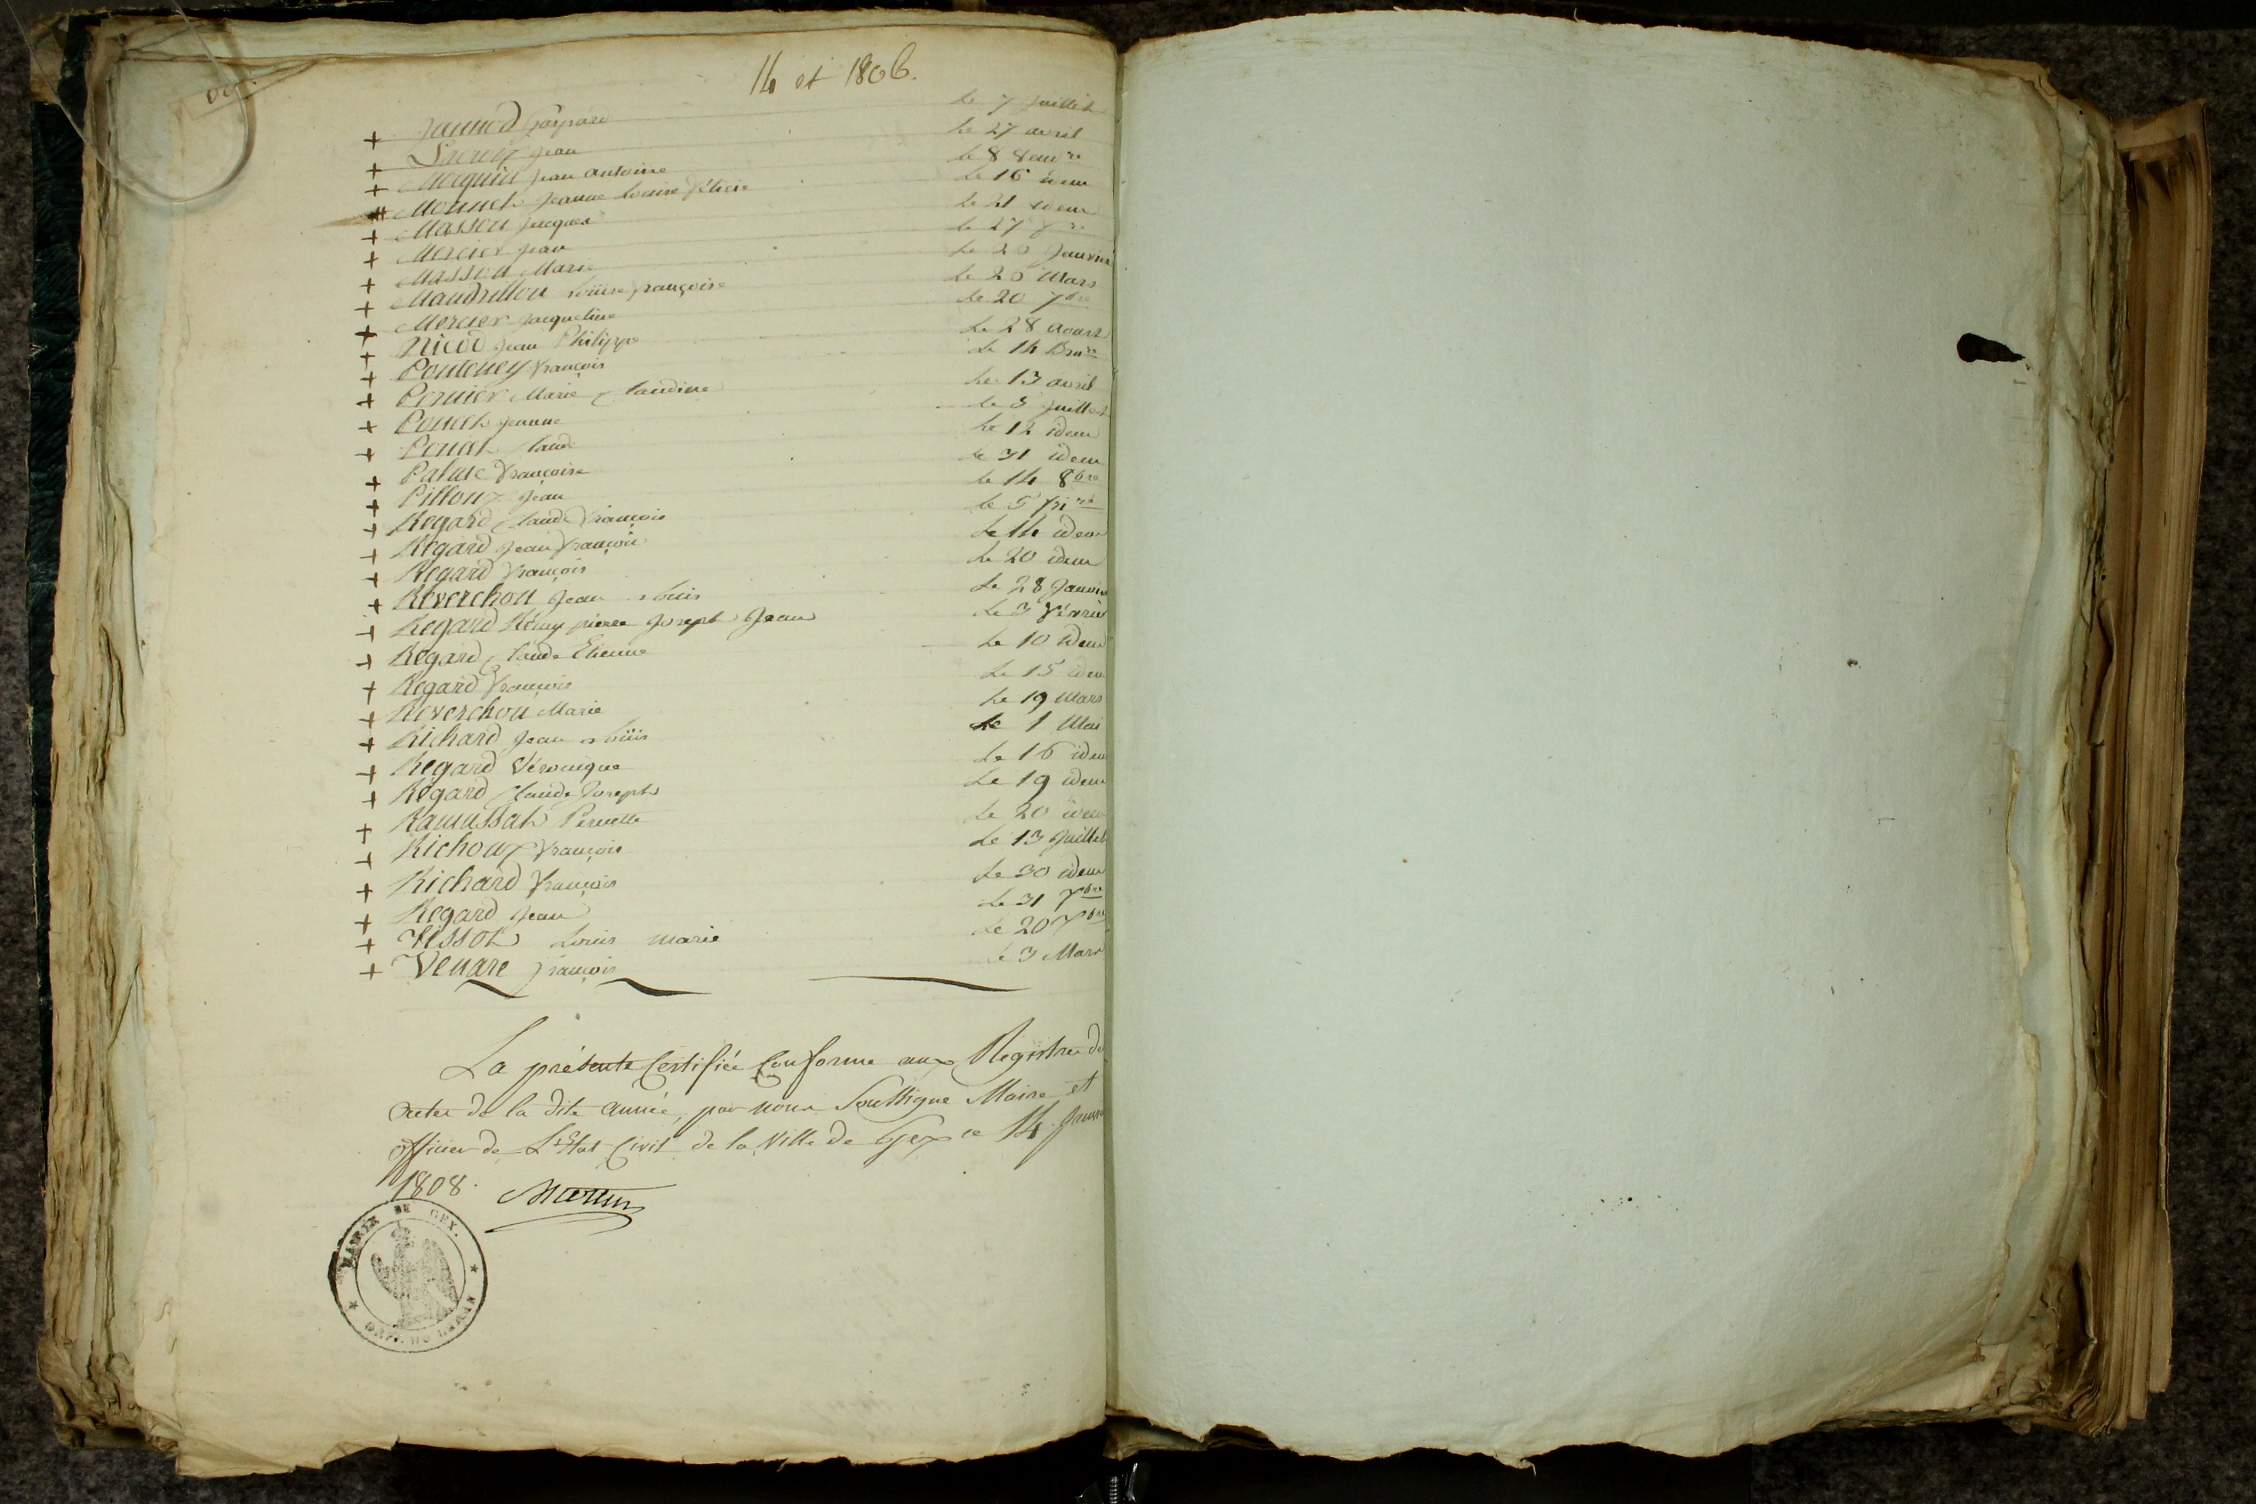 14 et 1806.
+ Jannod Gaspard le 7 Juillet
+ Lacroix Jean le 27 avril
+ Maquin Jean antoine le 8
+ Monnet Jeanne Louise félicie le 16 idem
+ Masson Jacques le 21 idem
+ Mercier Jean le 27
+ Masson Marie le 20 Janvier
+ Maudrillon Loüise françoise le 26 Mars
+ Mercier Jacqueline le 20 7bre
+ Nicod Jean Philippe le 28 Aoust
+ Ponteney françois le 14 Bre
+ Pernier Marie Claudine le 13 avril
+ Ponet Jeanne le 5 Juillet
+ Ponat Claude le 12 idem
+ Paluc françoise le 31 idem
+ Pilloux Jean le 14 8bre
+ Regard Claude françois le 5 fri re
+ Regard Jean françois le 14 idem
+ Regard françois le 20 idem
+ Reverchon Jean Loüis le 28 Janvier
+ Regard Rémy pierre Joseph Jean le 3 Février
+ Regard Claude Etienne le 10 idem
+ Regard françois le 15 idem
+ Reverchon Marie le 19 Mars
+ Richard Jean Loüis le 1 Mai
+ Regard Véronique le 16 idem
+ Regard Claude Joseph le 19 idem
+ Ramussat Pernette le 20 idem
+ Richoux françois le 13 Juillet
+ Richard françois le 30 idem
+ Regard Jean le 31 7bre
+ Tissot Louis marie le 20 7bre
+ Venare françois le 3 Mars
La présente Certifiée Conforme aux Régistres de
actes de la dite année, par nous Soussigné Maire et
officier de L'Etat Civil de la Ville de Gex ce 14 Janvier
1808.
MAIRIE DE GEX.
DEPT. DU LEMAN